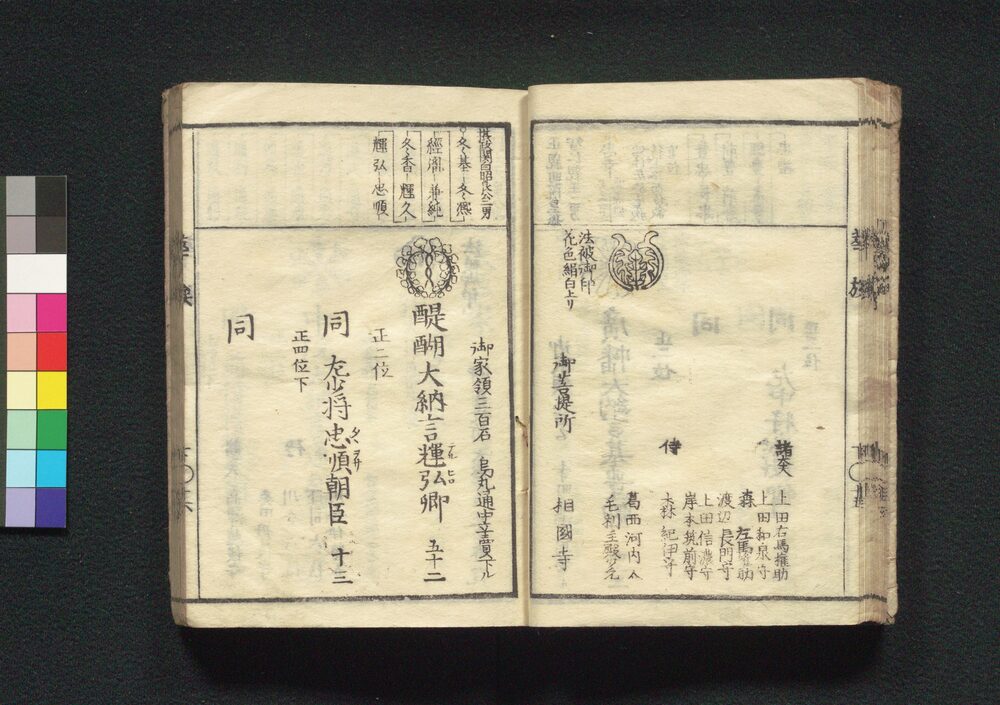 華族
諸大夫
上田右馬権助
上田和泉守
森左馬権助
渡辺長門守
上田信濃守
岸本筑前守
大森紀伊守
侍
葛西河内介
毛利主殿少允
法被御印
花色絹白上リ
御菩提所
相國寺
其後関白昭良公二男
冬基 冬熈
經胤 兼純
冬香 輝久
輝弘 忠順
御家領三百石 烏丸通中立賣下ル
醍醐大納言輝弘卿 五十二
テル ヒロ
正二位
同 左少将忠順朝臣 十三
タヽ ヲサ
正四位下
同